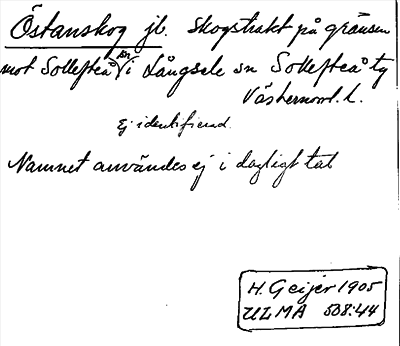 Östanskog jl. Skogstrakt på gränsen
mot Sollefteå sn i Långsele sn Sollefteå tg
Västernorrl. l.
Ej identifierad.
Namnet användes ej i dagligt tal
H. Geijer 1905
ULMA 508:44